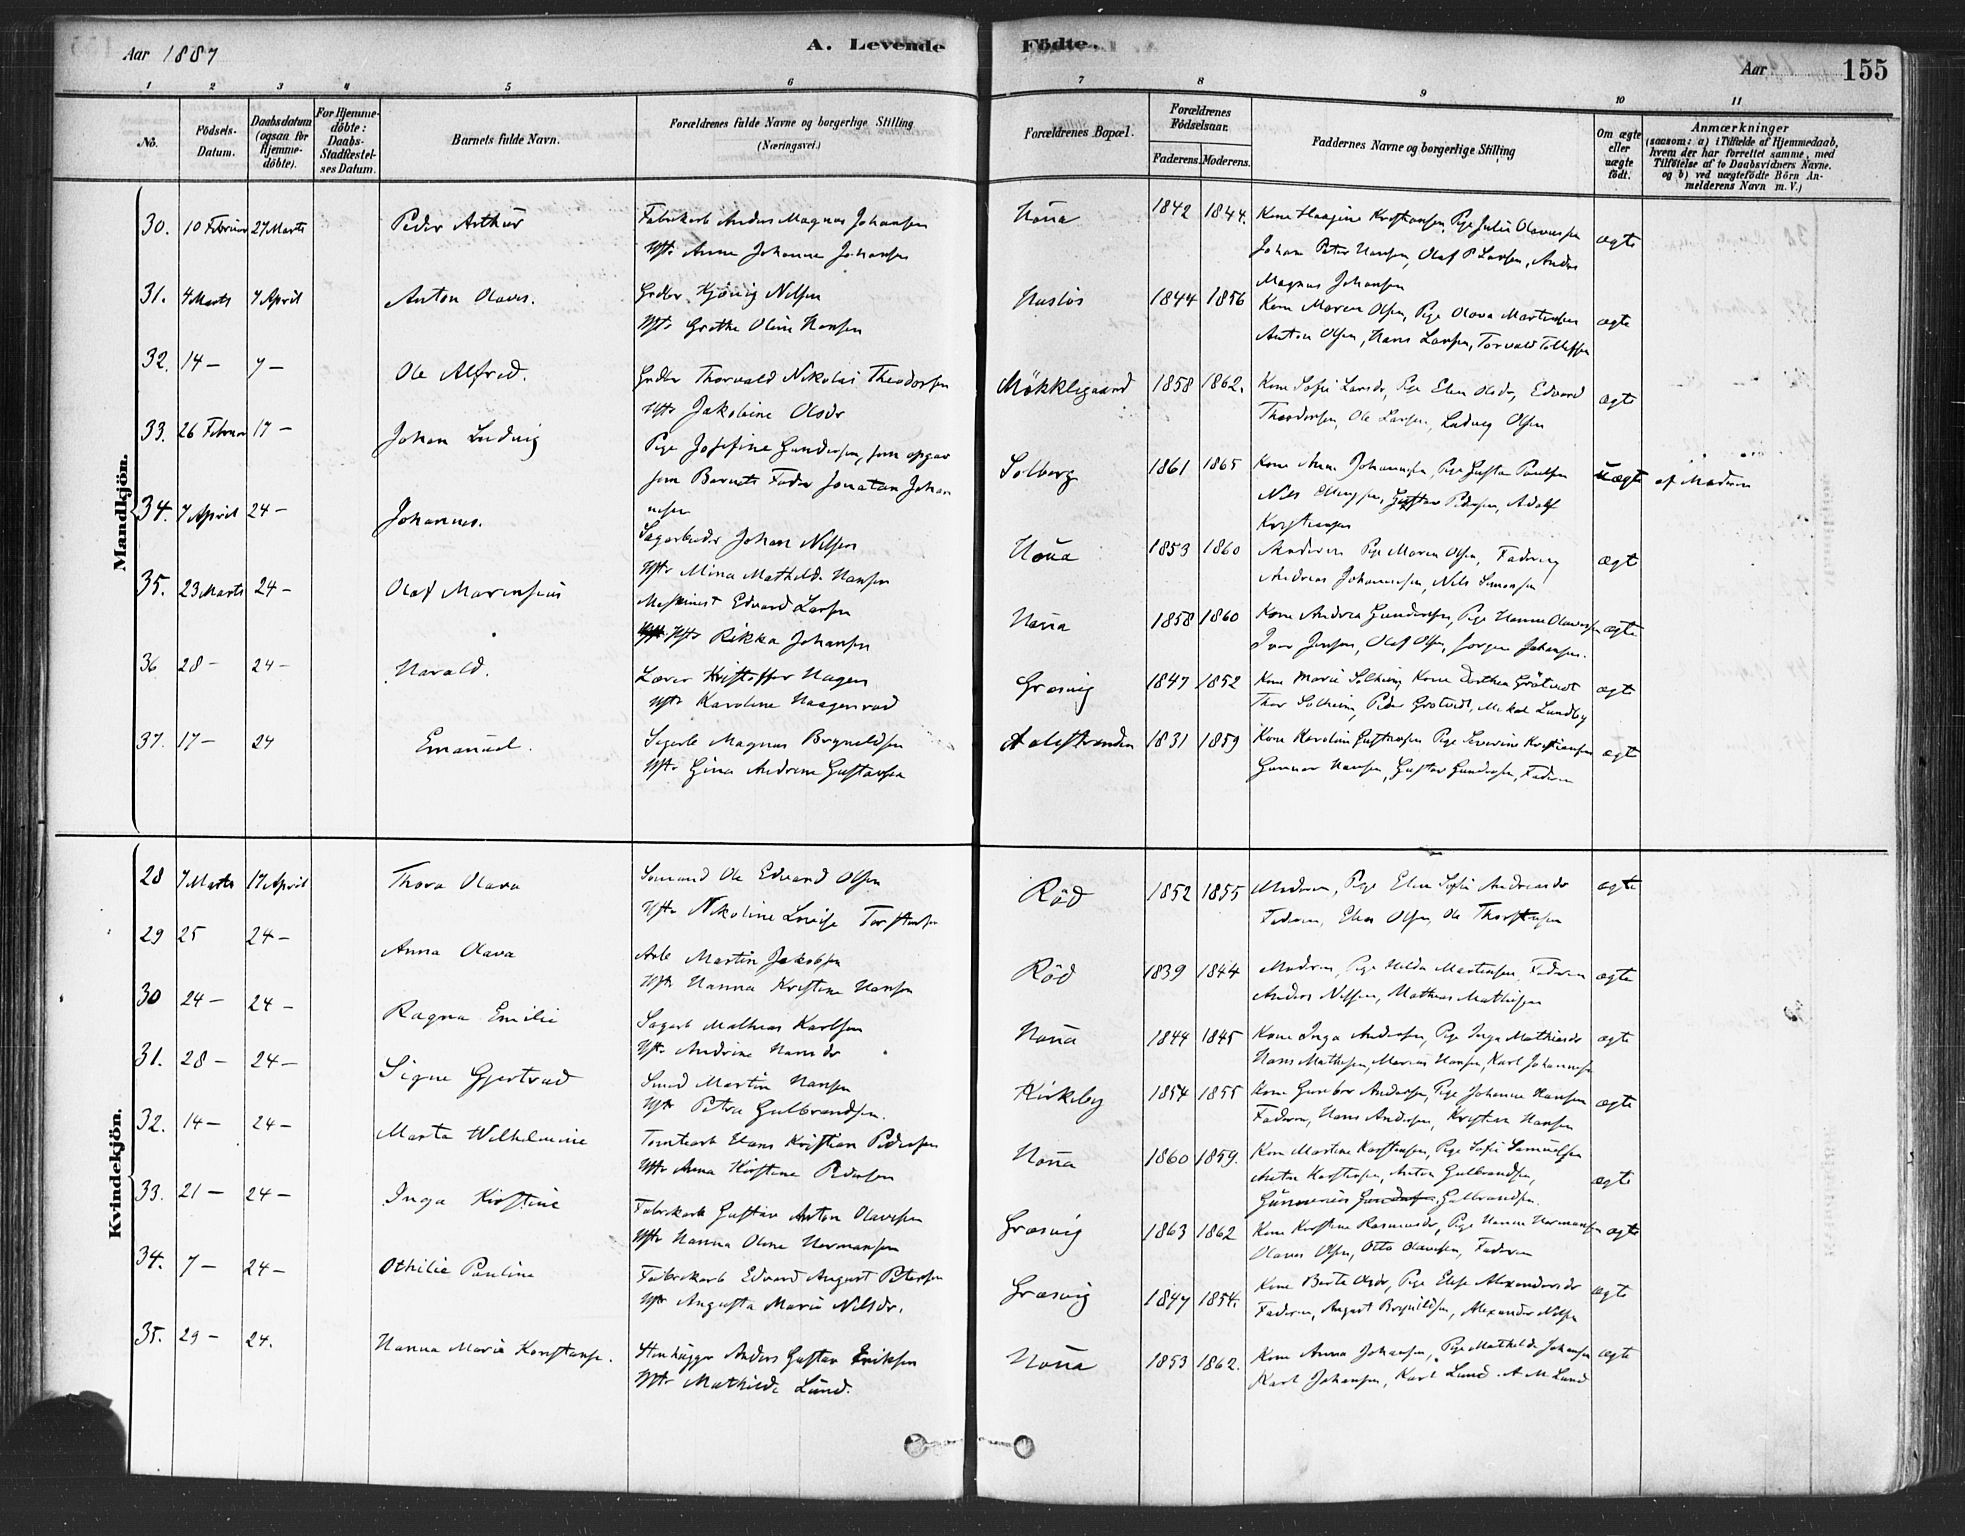 Aar 1887
A. Levende
Födte.
Aar
155
1 2 3 4 5 6 7 8 9 10 11
No.
Födsels-
Datum.
Daabsdatum
(ogsaa for
Hjemme-
döbte).
For Hjemme-
döbte:
Daabs-
Stadfæstel-
ses Datum.
Barnets fulde Navn.
Forældrenes fulde Navne og borgerlige Stilling
(Næringsvei.)
Forældrenes Bopæl.
Forældrenes
Födselsaar.
Faderens. Moderens.
Faddernes Navne og borgerlige Stilling
Om ægte
eller
uægte
födt.
Anmærkninger
(saasom: a) i Tilfælde af Hjemmedaab,
hvem der har forrettet samme, med
Tilföielse af to Daabsvidners Navne.
og b) ved uægtefödte Börn An-
melderens Navn m. V.)
Mandkjön.
30. 10 Februar 27 Marts Peder Arthur Fabrikarb Anders Magnus Johansen
Hstr Anne Johanne Johansen
1842 1844. Kone Haagine Kristiansen, Pige Julie Olavessen
Johan Peter Hansen, Olaf P Larsen, Anders
Magnus Johansen
ægte
31. 4 Marts 7 April Anton Olaves. Grdbr Hjönig Nilsen
Hstr Grethe Oline Hansen
1844 1856 Kone Maren Olsen, Pige Olava Martinsen
Anton Olsen, Hans Larsen, Torvald Tollefsen
ægte
32. 14 — 7 — Ole Alfred. Grdbr Thorvald Nikolai Theodorsen
Hstr Jakobine Olsdr
Mökklegaard 1858 1862. Kone Sofie Larsdr, Pige Elen Olsdr, Edvard
Theodorsen, Ole Larsen, Ludvig Olsen
ægte
33. 26 Februar 17 — Johan Ludvig Pige Josefine Gundersen, som opgav
som Barnets Fader Jonatan Johan
nesen
Solberg 1861 1865 Kone Anne Johannesen, Pige Gusta Paulsen
Nils Ellingsen, Gustav Pedersen, Adolf
Kristiansen
uægte af Moderen
34. 7 April 24 — Johannes. Sagarbeider Johan Nilsen
Hstr Mina Mathilde Hansen
1853 1860 Moderen Pige Maren Olsen, Faderen
Andreas Johannesen, Nils Simensen
ægt
35. 23 Marts 24 — Olaf Marensius Maskinist Edvard Larsen
Hstr Rikka Johansen
1858 1860 Kone Andrea Gundersen, Pige Hanne Olavessen
Iver Jensen, Olaf Olsen, Jörgen Johansen.
ægte
36 28 — 24 — Harald. Lærer Kristoffer Hagen
Hstr Karoline Haagensrud
Græsvig 1847 1852 Kone Marie Solheim, Kone Dorthea Grötvedt
Thor Solheim, Peder Grotvedt, Mikal Lundby
ægt
37. 17 — 24 Emanuel. Sagarb Magnus Brynildsen
Hstr Gina Andrine Gustavsen
Aalestranden 1831 1859 Kone Karoline Gustavsen Pige Severine Kristiansen
Gunnar Hansen, Gustav Gundersen, Faderen
ægt
Kvindekjön.
28 7 Marts 17 April Thora Olava Sömand Ole Edvard Olsen
Hstr Nikoline Lovise Torstensen
Röd 1852 1855 Moderen, Pige Elen Sofie Andreasdr
Faderen, Elias Olsen, Ole Thorstensen
ægte
29 25 24 — Anna Olava Arb Martin Jakobsen
Hstr Hanna Kristine Hansen
Röd 1839 1844 Moderen, Pige Hilda Martinsen, Faderen
Anders Nilsen, Mathias Mathisen
ægte
30 24 — 24 — Ragna Emilie Sagarb Mathias Karlsen
Hstr Andrine Hansdr
1844 1845 Kone Inga Andersen, Pige Inga Mathiasdr
Hans Mathisen, Marius Hansen, Karl Johannesen
ægte
31. 28 — 24 — Signe Gjertrud Smed Martin Hansen
Hstr Petra Gulbrandsen.
Kirkeby 1854 1855 Kone Gunbor Andersen, Pige Johanne Hansen
Faderen, Hans Andersen, Kristian Hansen
ægte
32. 14 — 24 — Marta Wilhelmine Tomtearb Elans Kristian Pedersen
Hstr Anna Kirstine Pedersen
1860 1859. Kone Martine Karstensen, Pige Sofie Samuelsen
Anton Karstensen, Anton Gulbrandsen,
Gunerius Gulbrandsen.
ægte
33. 21 — 24 — Inga Kirstine Fabrikarb Gustav Anton Olavesen
Hstr Hanna Oline Hermansen
Græsvig 1863 1862 Kone Kirstine Rasmusdr, Pige Hanne Hermansen
Olaves Olsen, Otto Olavesen, Faderen
ægte
34. 7 — 24 — Othilie Pauline Fabrikarb Edvard August Petersen
Hstr Augusta Marie Nilsdr.
Græsvig 1847 1854. Kone Berte Olsdr, Pige Elise Alexandersdr
Faderen, August Brynildsen, Alexander Nilsen
ægte
35. 29 — 24. Hanna Marie Konstanse. Stenhugger Anders Gustav Eriksen
Hstr Mathilde Lund.
1853 1862. Kone Anna Johansen, Pige Mathilde Johansen
Karl Johansen, Karl Lund A M Lund
ægte